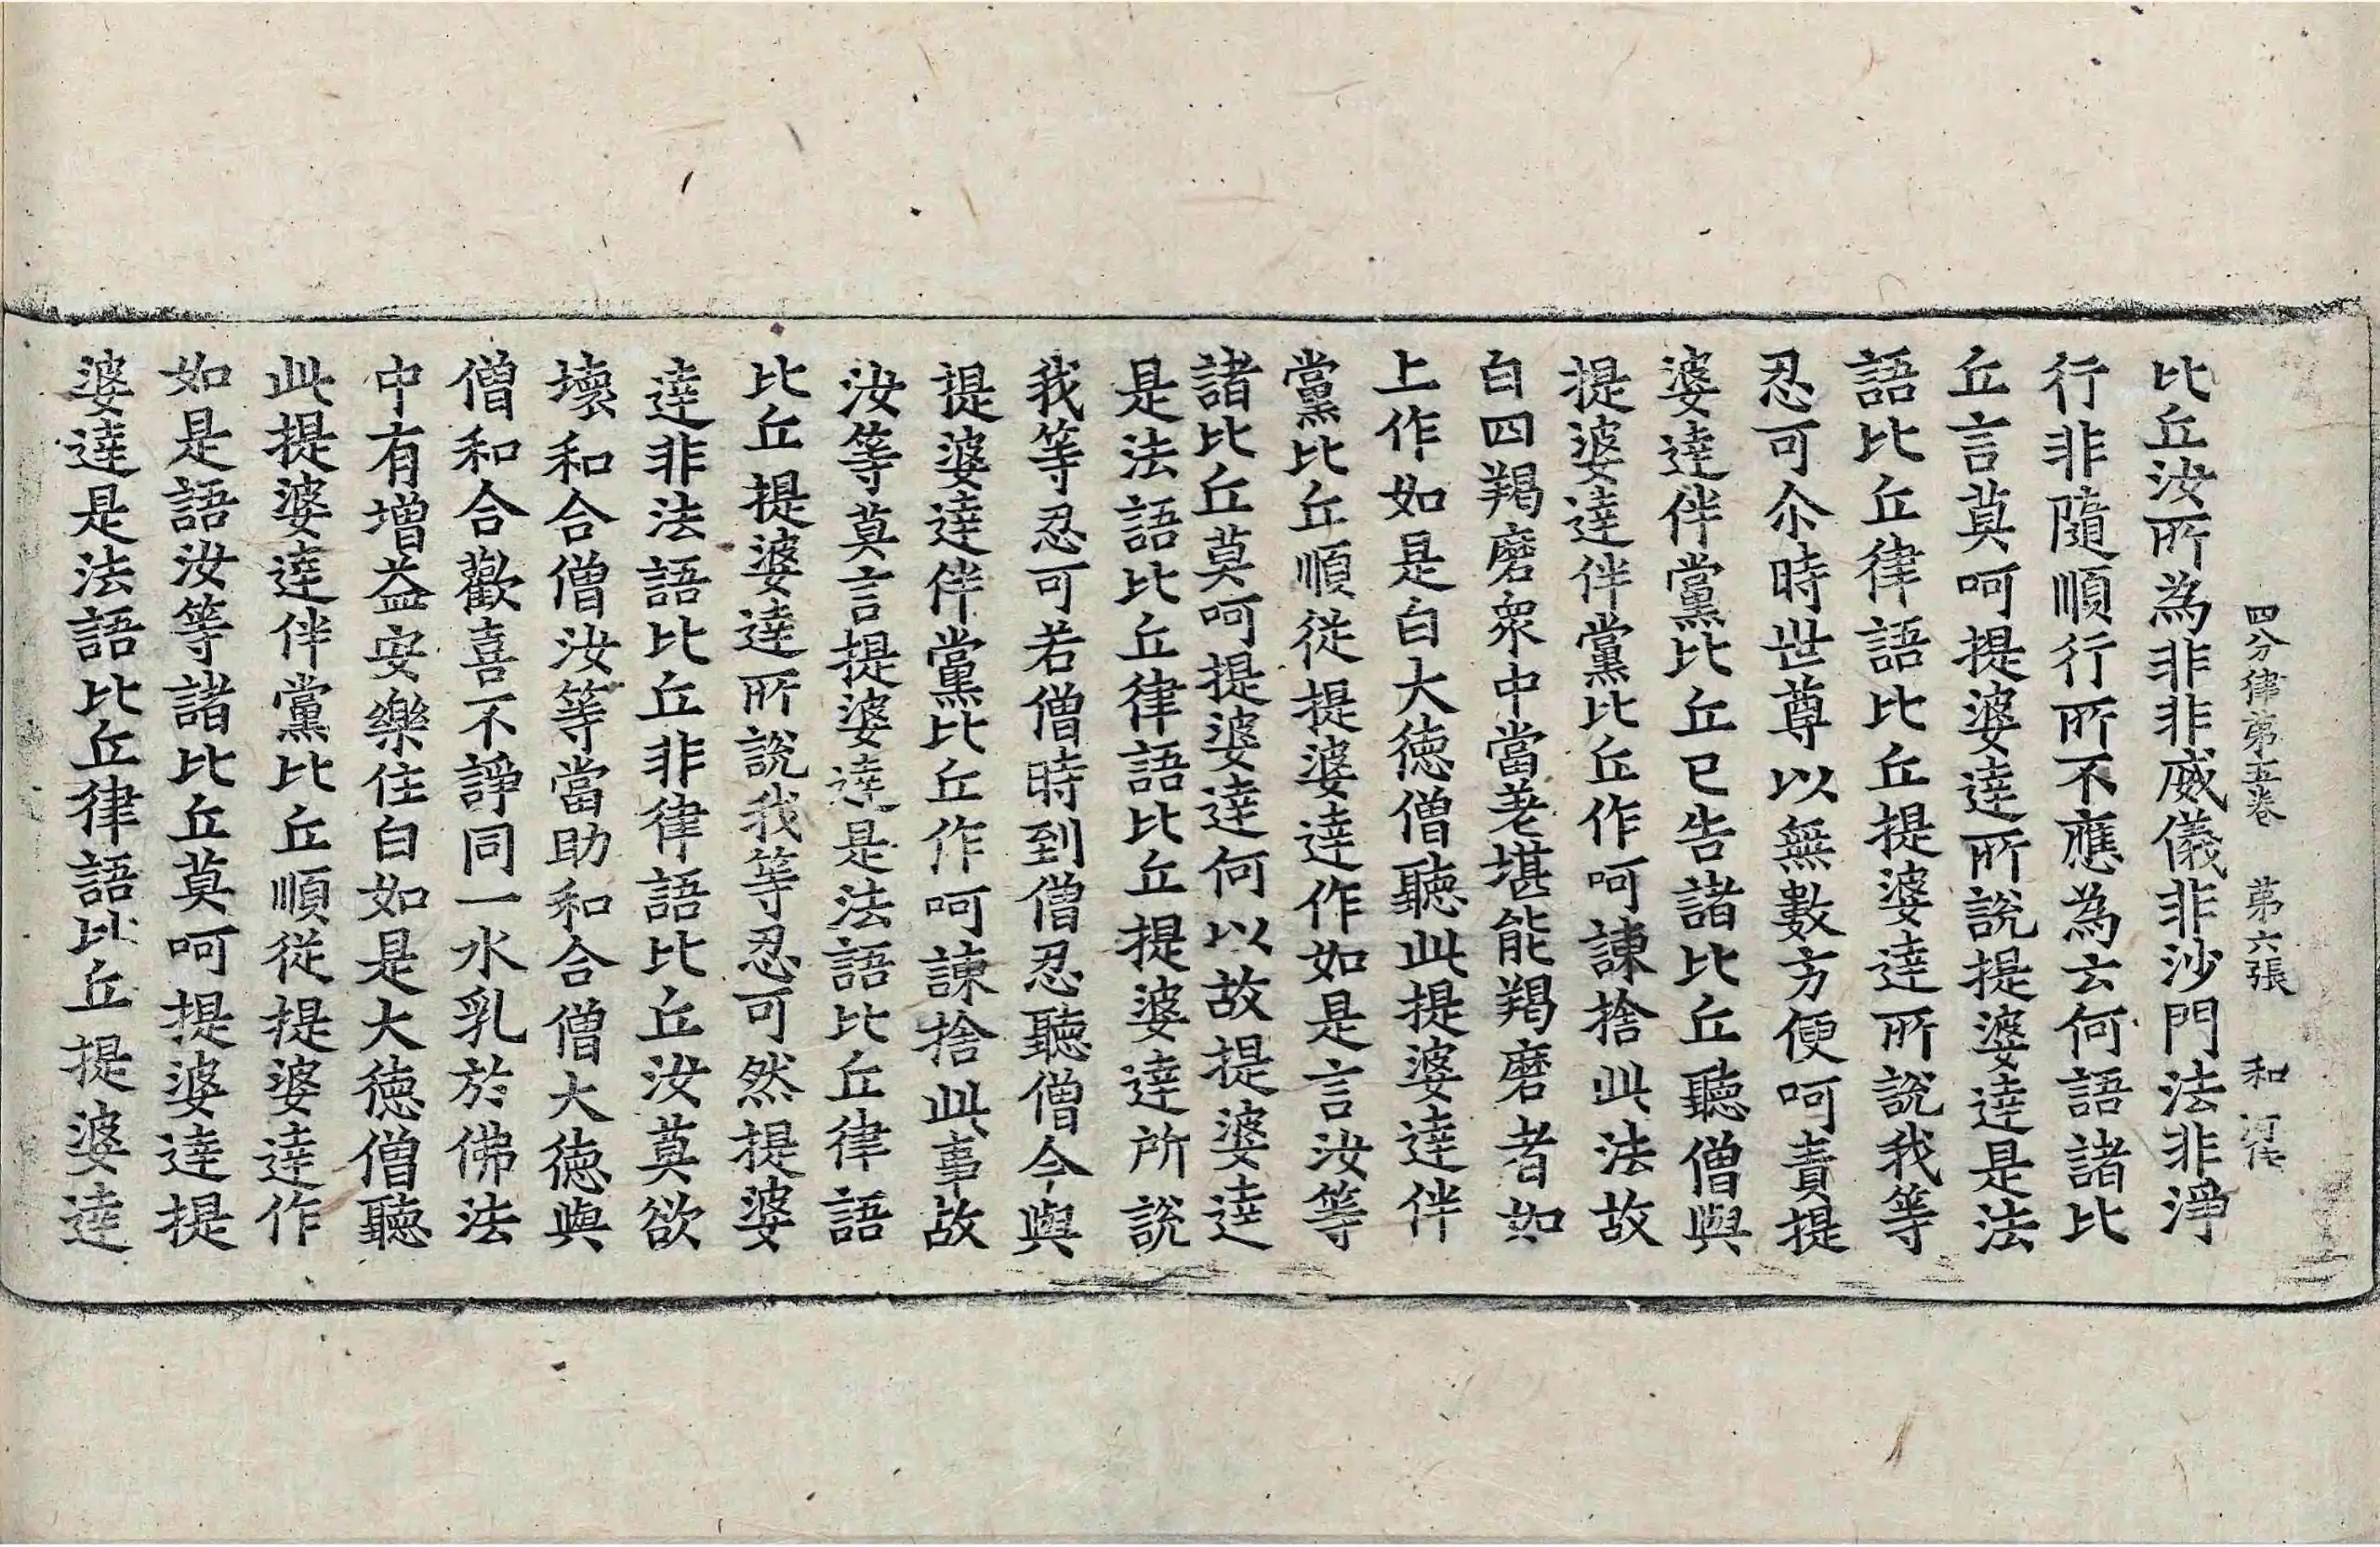 四分律第五卷　第六張　和
比丘汝所為非非威儀非沙門法非淨
行非隨順行所不應為云何語諸比
丘言莫呵提婆達所說提婆達是法
語比丘律語比丘提婆達所說我等
忍可尒時世尊以無數方便呵責提
婆達伴黨比丘已告諸比丘聽僧與
提婆達伴黨比丘作呵諫捨此法故
白四羯磨眾中當差堪能羯磨者如
上作如是白大德僧聽此提婆達伴
黨比丘順從提婆達作如是言汝等
諸比丘莫呵提婆達何以故提婆達
是法語比丘律語比丘提婆達所說
我等忍可若僧時到僧忍聽僧今與
提婆達伴黨比丘作呵諫捨此事故
汝等莫言提婆達是法語比丘律語
比丘提婆達所說我等忍可然提婆
達非法語比丘非律語比丘汝莫欲
壞和合僧汝等當助和合僧大德與
僧和合歡喜不諍同一水乳於佛法
中有增益安樂住白如是大德僧聽
此提婆達伴黨比丘順從提婆達作
如是語汝等諸比丘莫呵提婆達提
婆達是法語比丘律語比丘提婆達